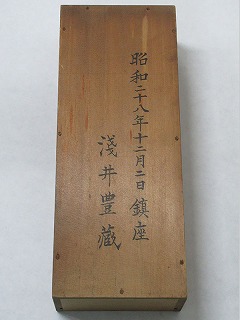 昭和二十八年十二月二日 鎮座
淺井豊蔵